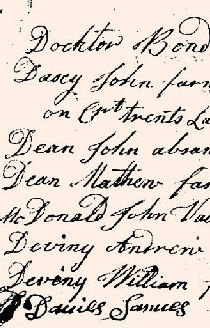 Docktor Bond
Dacey John farm
on Crt trents La
Dean John absan
Dean Mathew far
McDonald John Vac
Deviny Andrew
Deviny William f
Davies Samuel